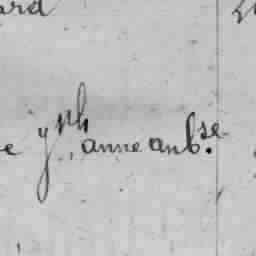 ard
e yph, anne amb.se